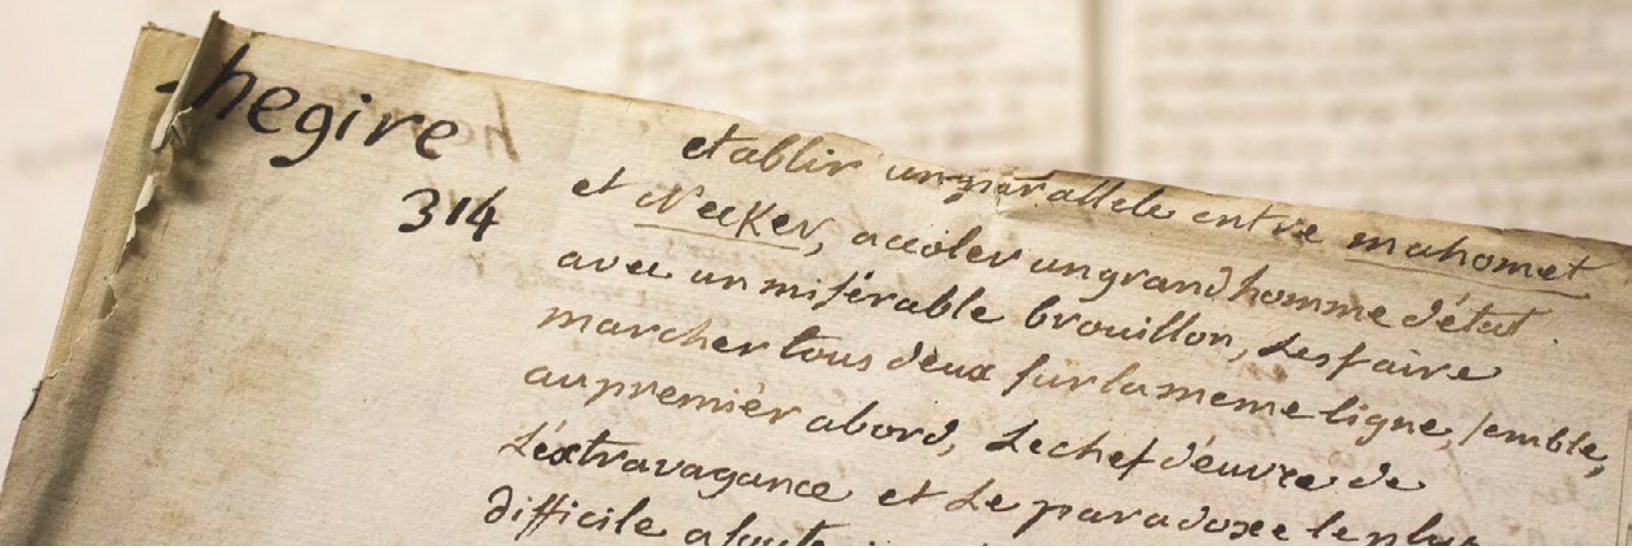 hegire
314
etablir un parallele entre mahomet
et Necker, accoler un grand homme d'état
avec un misérable brouillon, Les faire
marcher tous deux sur la meme ligne, semble,
au premièr abord, Le chef d'euvre de
L'éxtravagance et Le paradoxe le plus
difficile a